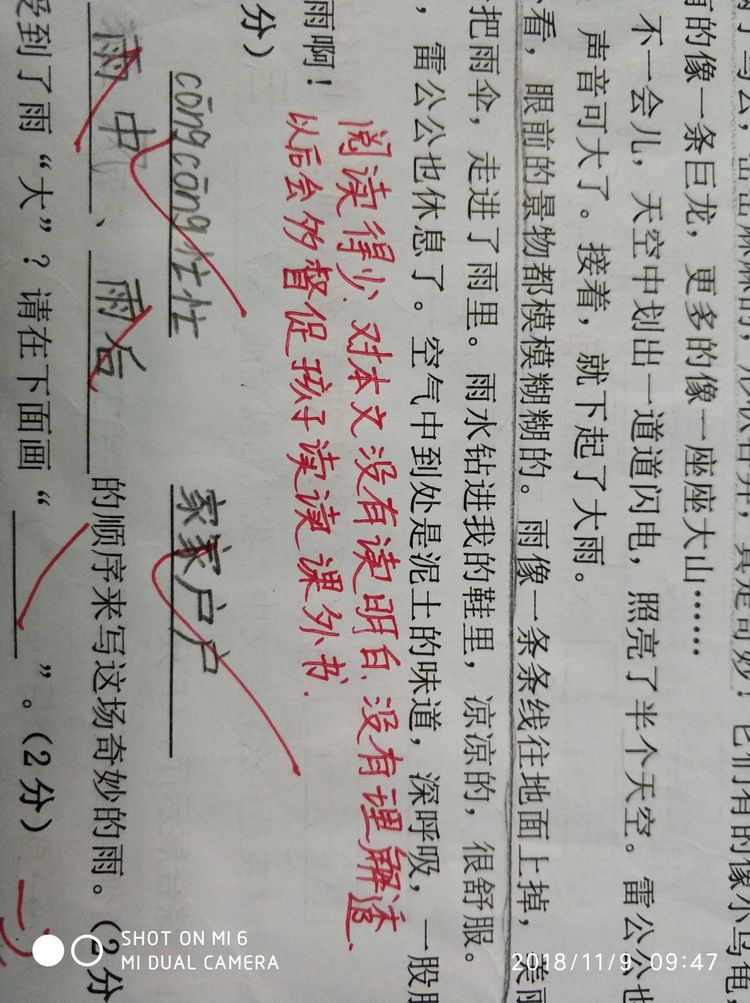 真是奇妙！它们有的像小乌龟
有的像一条巨龙，更多的像一座座大山……
不一会儿，天空中划出一道道闪电，照亮了半个天空。雷公公也
声音可大了。接着，就下起了大雨。
看，眼前的景物都模模糊糊的。雨像一条条线往地面上掉，美丽
把雨伞，走进了雨里。雨水钻进我的鞋里，凉凉的，很舒服。
，雷公公也休息了。空气中到处是泥土的味道，深呼吸，一股
雨啊！
阅读得少，对本文没有读明白，没有理解透.
以后会多督促孩子读读课外书.
分）
cōngcōng忙忙 家家户户
雨中、雨后的顺序来写这场奇妙的雨。（2分
受到了雨“大”？请在下面画“____”。（2分）
SHOT ON MI 6
MI DUAL CAMERA
2018/11/9 09:47